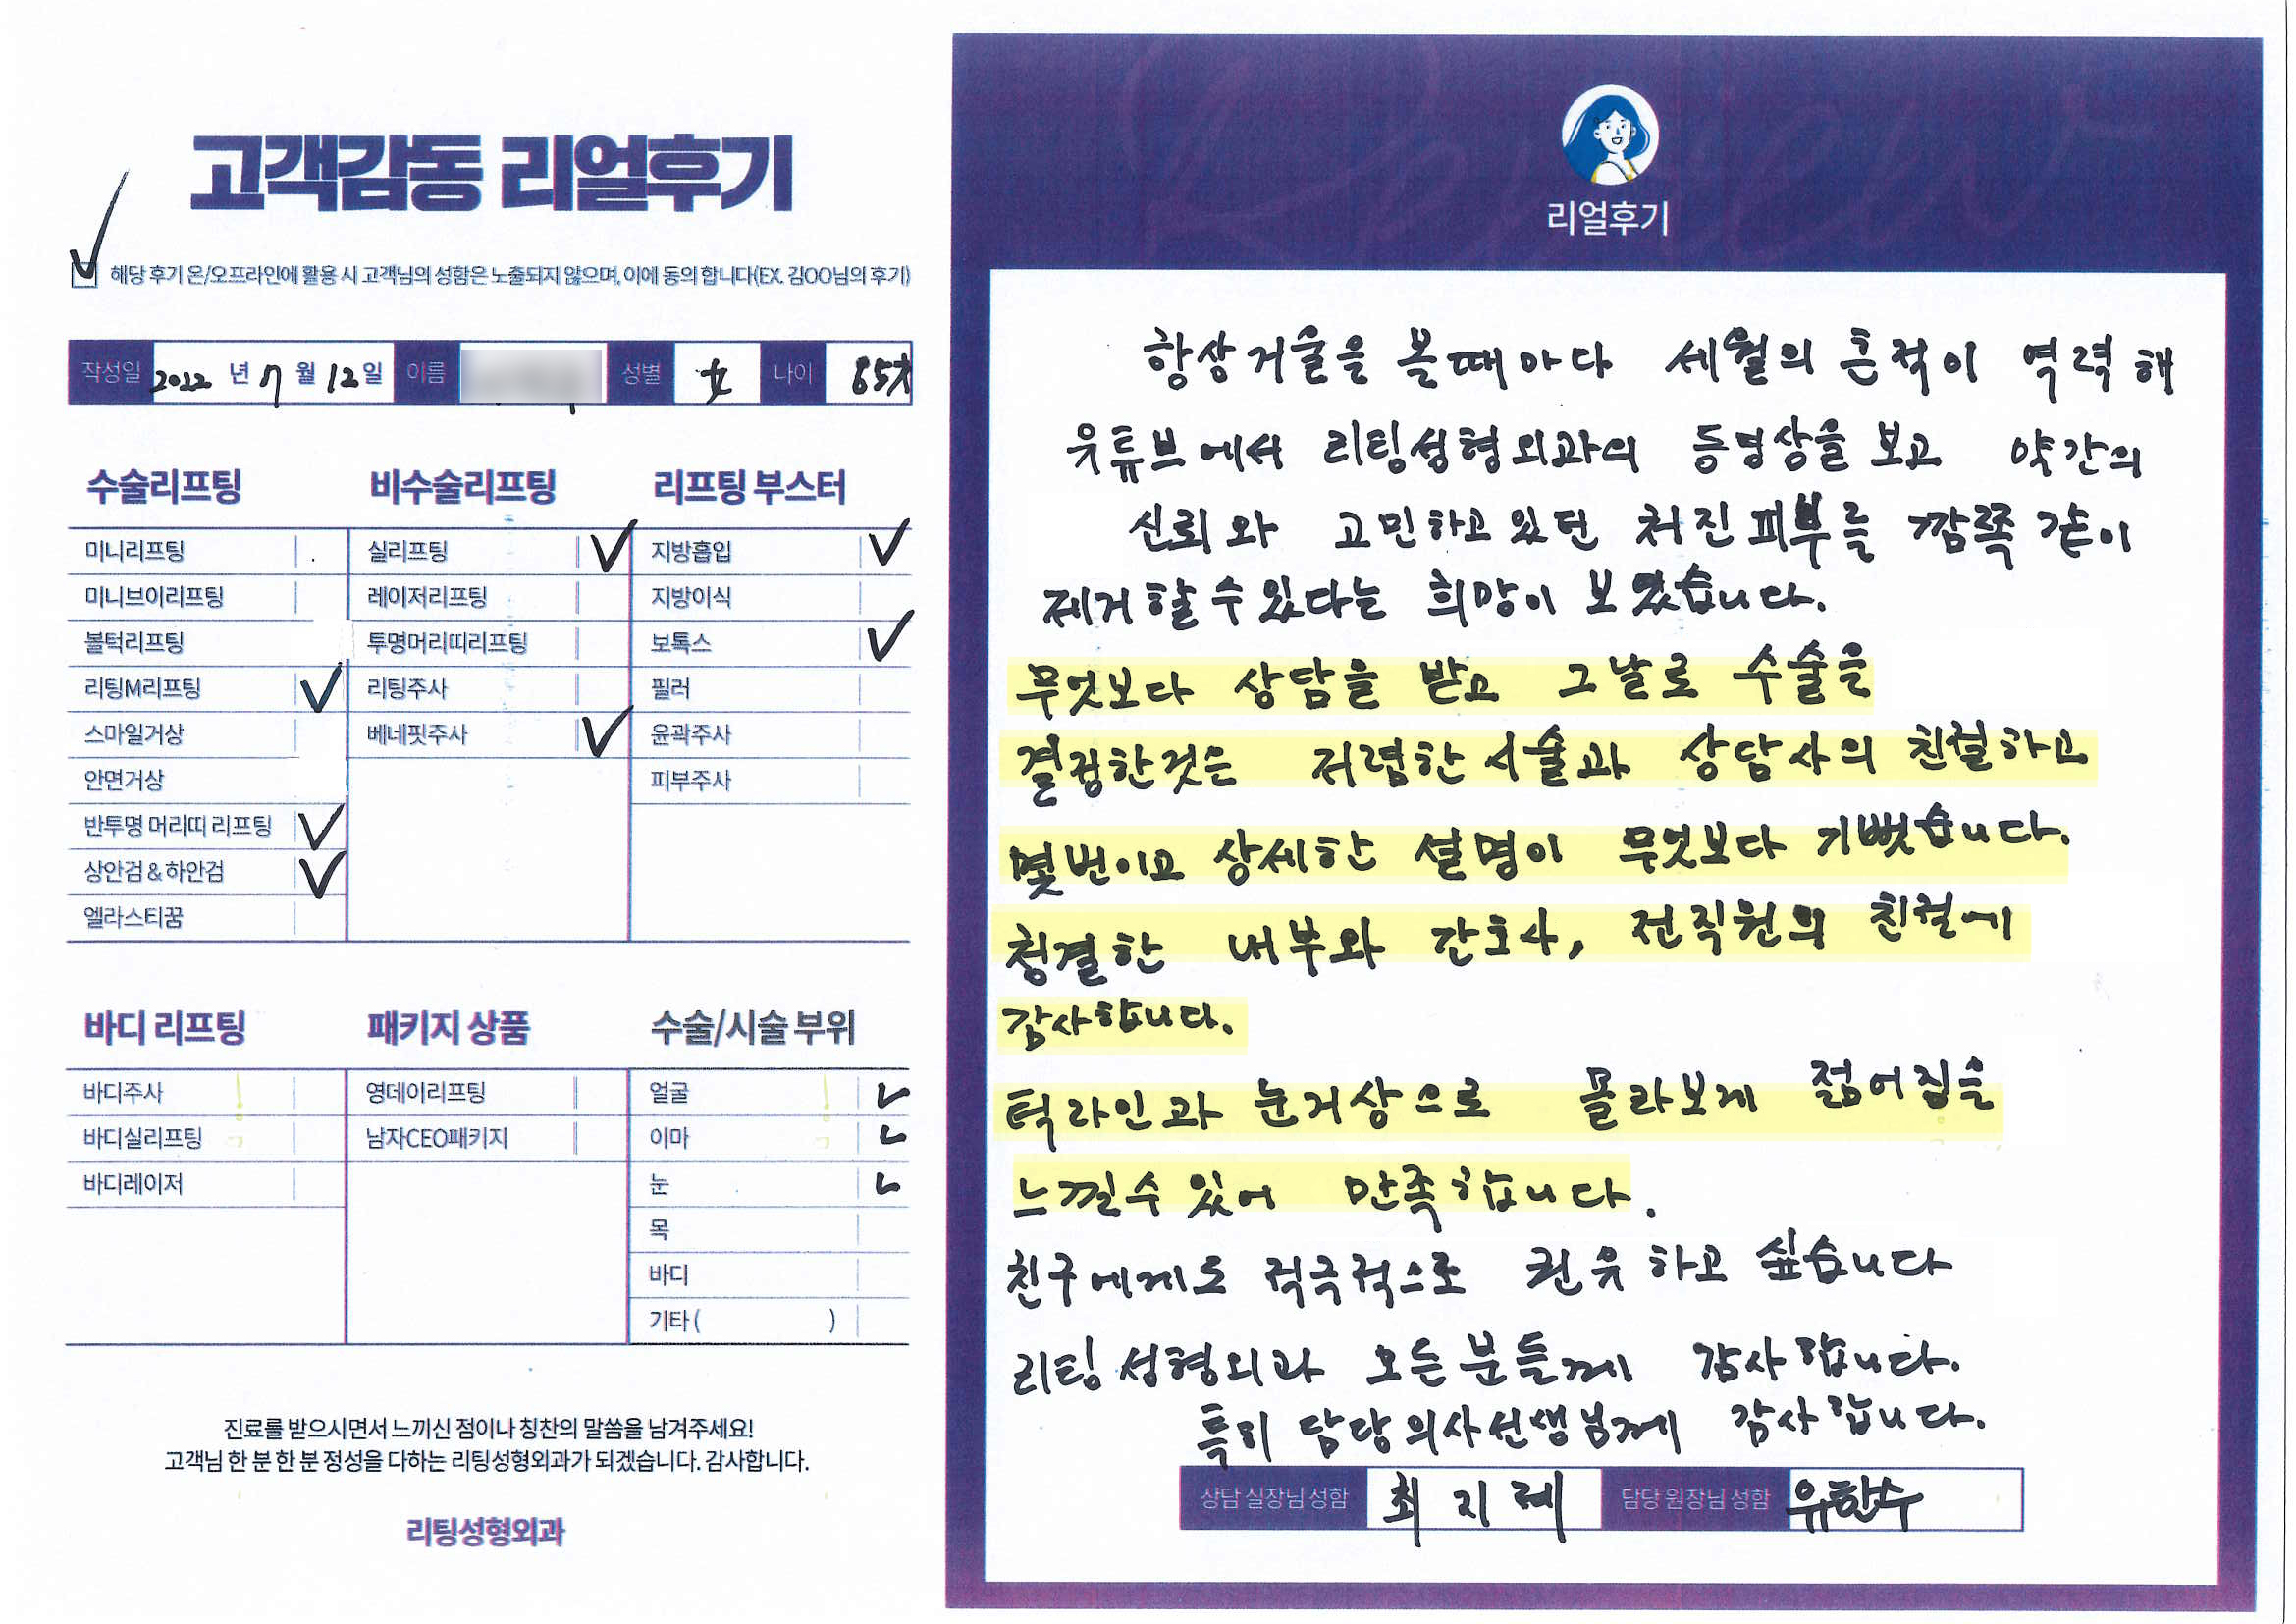 고객감동 리얼후기
해당 후기 온/오프라인에 활용 시 고객님의 성함은 노출되지 않으며, 이에 동의 합니다(EX. 김OO님의 후기)
작성일 2022 년 7 월 12 일 이름 성별 女 나이 65才
수술리프팅 비수술리프팅 리프팅 부스터
미니리프팅 실리프팅 ✓ 지방흡입 ✓
미니브이리프팅 레이저리프팅 지방이식
볼턱리프팅 투명머리띠리프팅 보톡스 ✓
리팅M리프팅 ✓ 리팅주사 필러
스마일거상 베네핏주사 ✓ 윤곽주사
안면거상 피부주사
반투명 머리띠 리프팅 ✓
상안검 & 하안검 ✓
엘라스티꿈
바디 리프팅 패키지 상품 수술/시술 부위
바디주사 영데이리프팅 얼굴 ✓
바디실리프팅 남자CEO패키지 이마 ✓
바디레이저 눈 ✓
목
바디
기타 ( )
진료를 받으시면서 느끼신 점이나 칭찬의 말씀을 남겨주세요!
고객님 한 분 한 분 정성을 다하는 리팅성형외과가 되겠습니다. 감사합니다.
리팅성형외과
리얼후기
항상 거울을 볼때마다 세월의 흔적이 역력해
유튜브에서 리팅성형외과의 동영상을 보고 약간의
신뢰와 고민하고 있던 처진피부를 깜쪽 같이
제거 할 수 있다는 희망이 보였습니다.
무엇보다 상담을 받고 그날로 수술을
결정한것은 저렴한 시술과 상담사의 친절하고
몇번이고 상세한 설명이 무엇보다 기뻤습니다.
청결한 내부와 간호사, 전직원의 친절에
감사합니다.
턱라인과 눈거상으로 몰라보게 젊어짐을
느낄수 있어 만족합니다.
친구에게도 적극적으로 권유하고 싶습니다
리팅성형외과 모든분들께 감사합니다.
특히 담당의사선생님께 감사합니다.
상담 실장님 성함 최지례 담당 원장님 성함 유한수